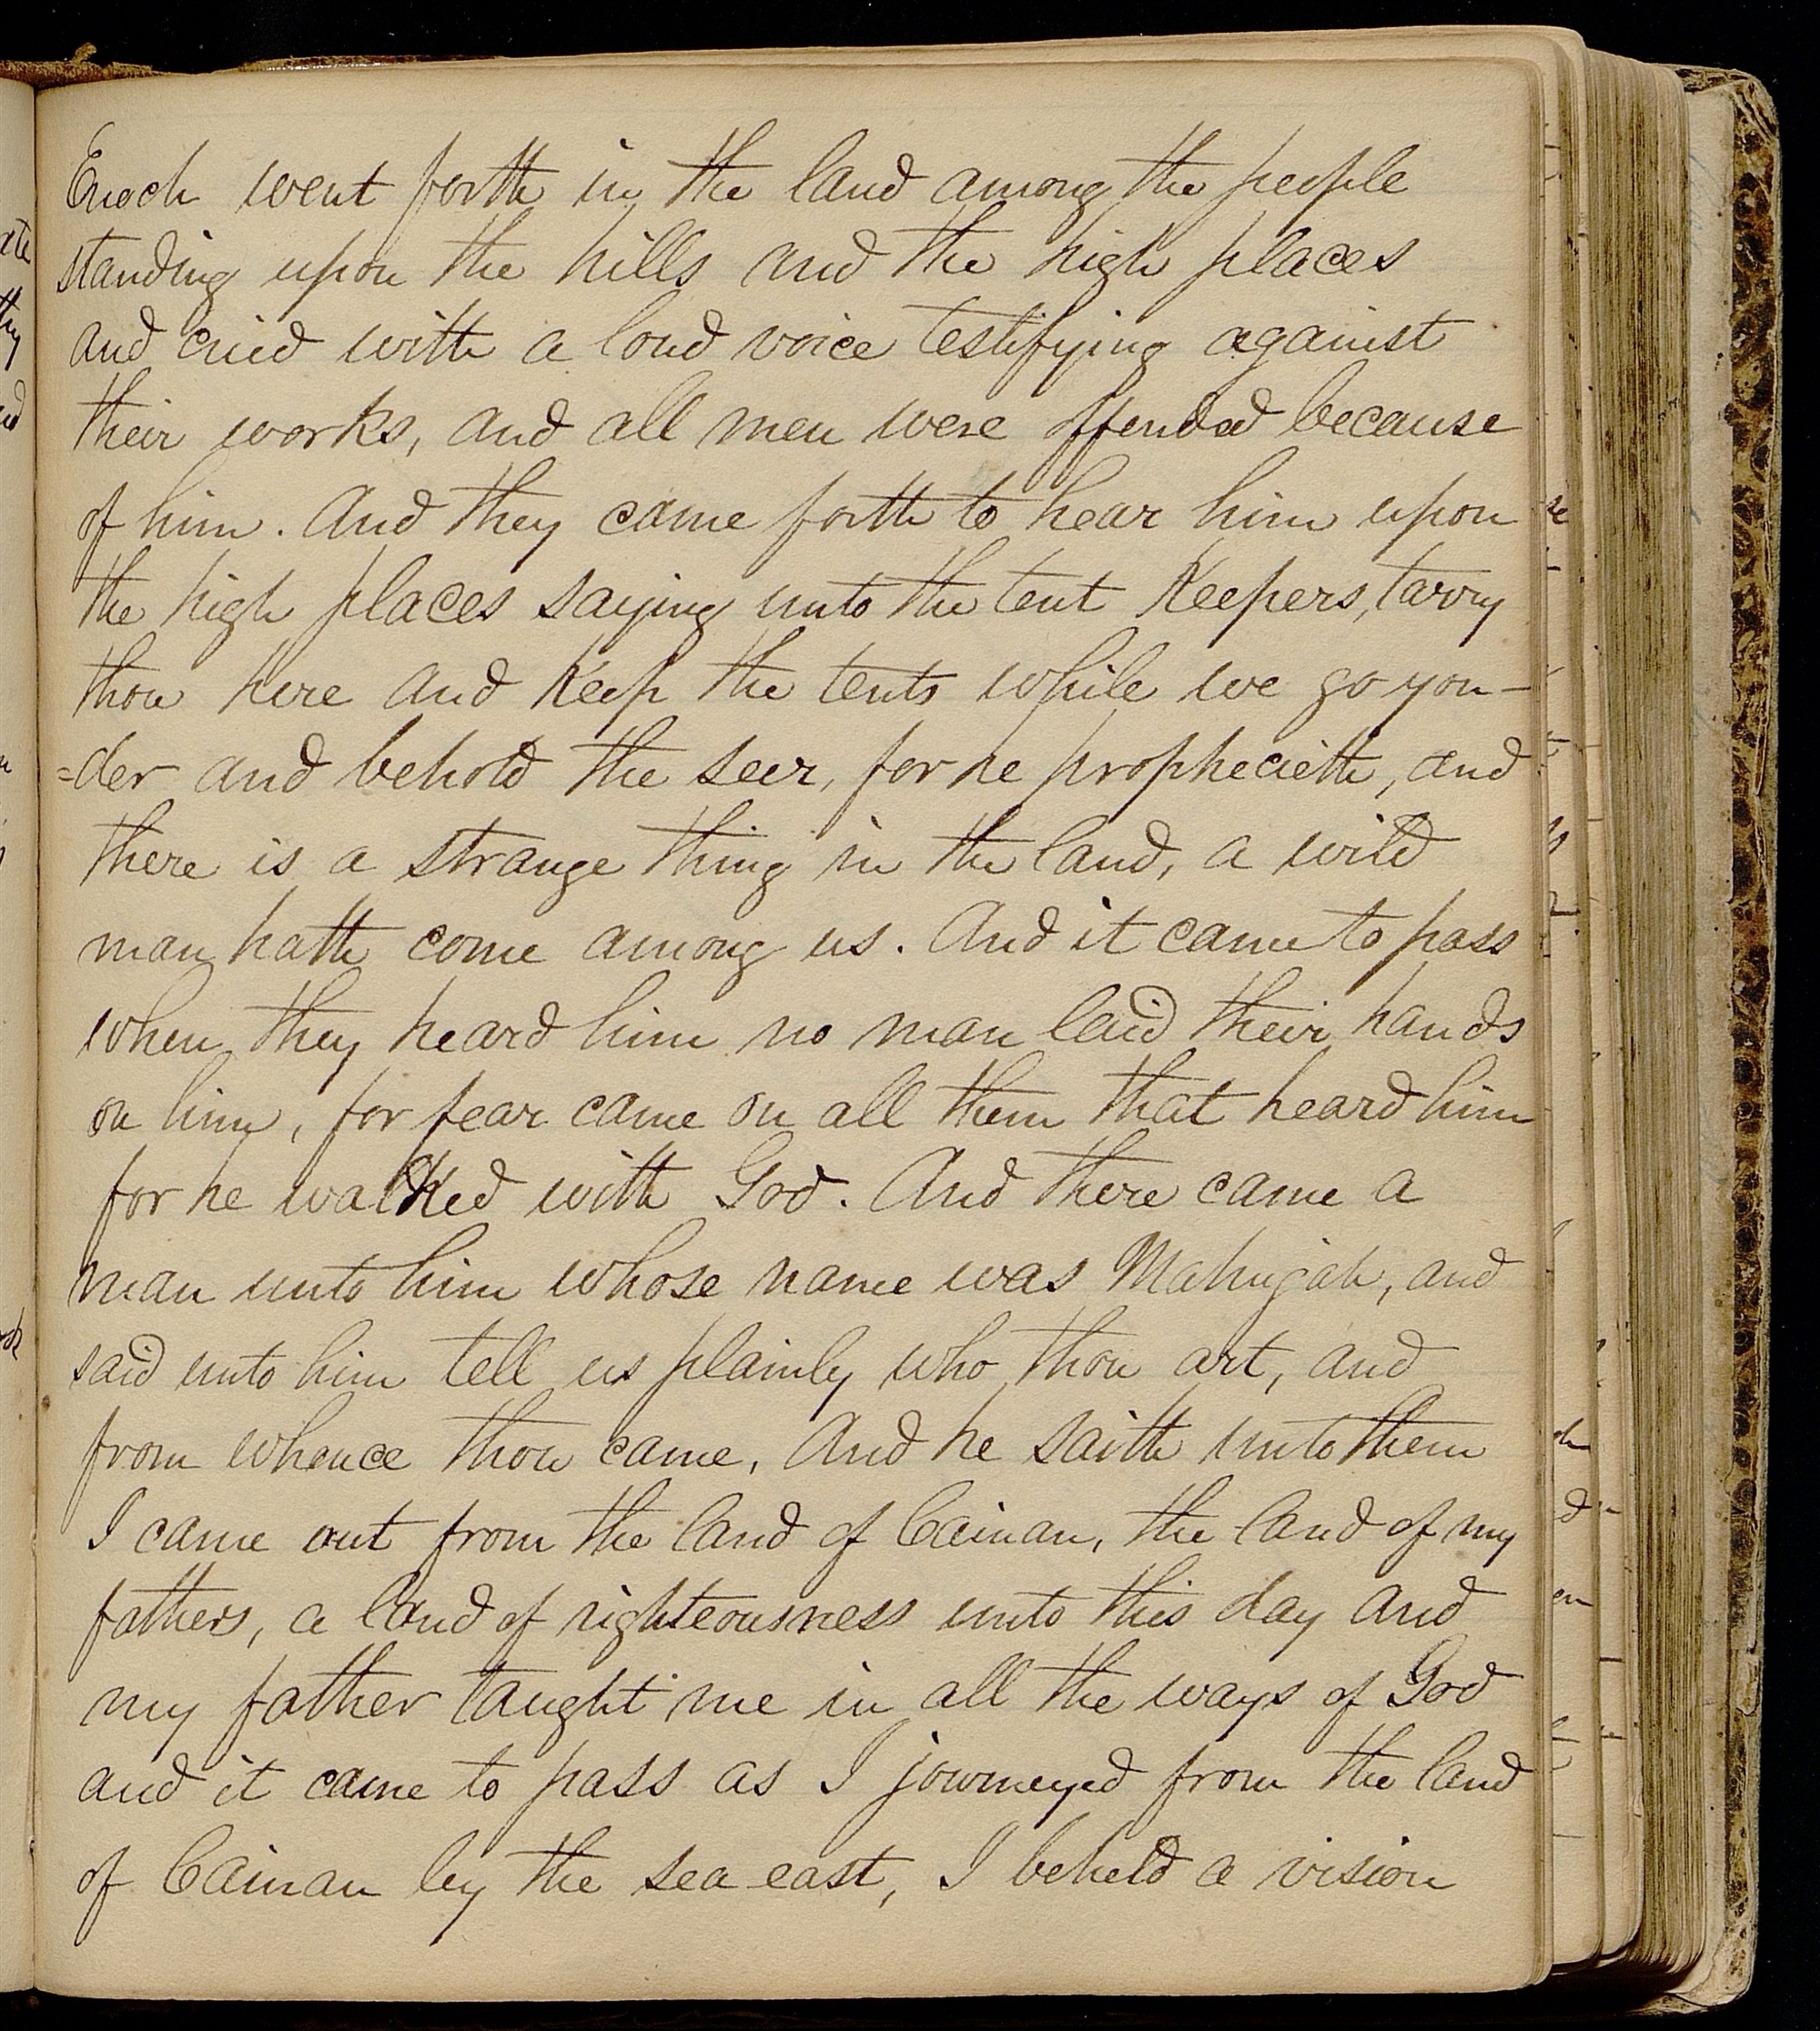 Enoch went forth in the land among the people
standing upon the hills and the high places
and cried with a loud voice testifying against
their works, and all men were offended because
of him. And they came forth to hear him upon
the high places saying unto the tent Keepers, tarry
thou here and Keep the tents while we go yon-
=der and behold the seer, for he prophecieth, and
there is a strange thing in the land, a wild
man hath come among us. And it came to pass
when they heard him no man laid their hands
on him, for fear came on all them that heard him
for he walked with God. And there came a
man unto him whose name was Mahujah, and
said unto him tell us plainly who thou art, and
from whence thou came, And he saith unto them
I came out from the land of Cainan, the land of my
fathers, a land of righteousness unto this day and
my father taught me in all the ways of God
and it came to pass as I journeyed from the land
of Cainan by the sea east, I beheld a vision